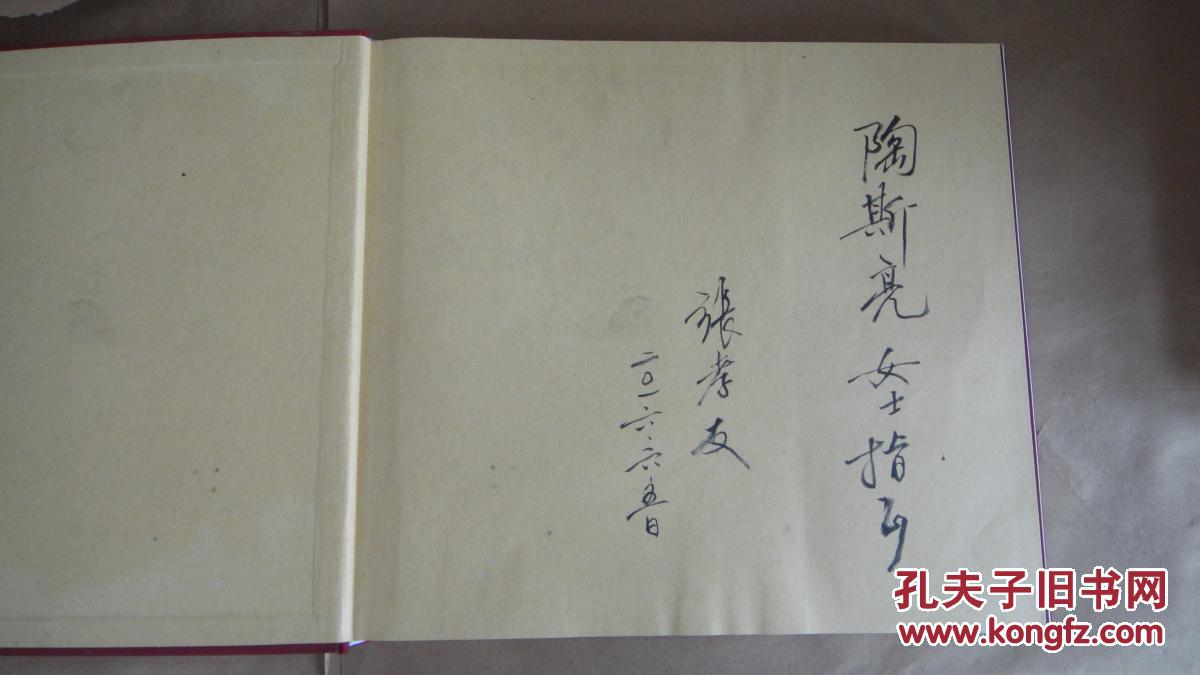 陶斯亮女士指正
張孝友
二〇一六.六.五日
孔夫子旧书网
www.kongfz.com